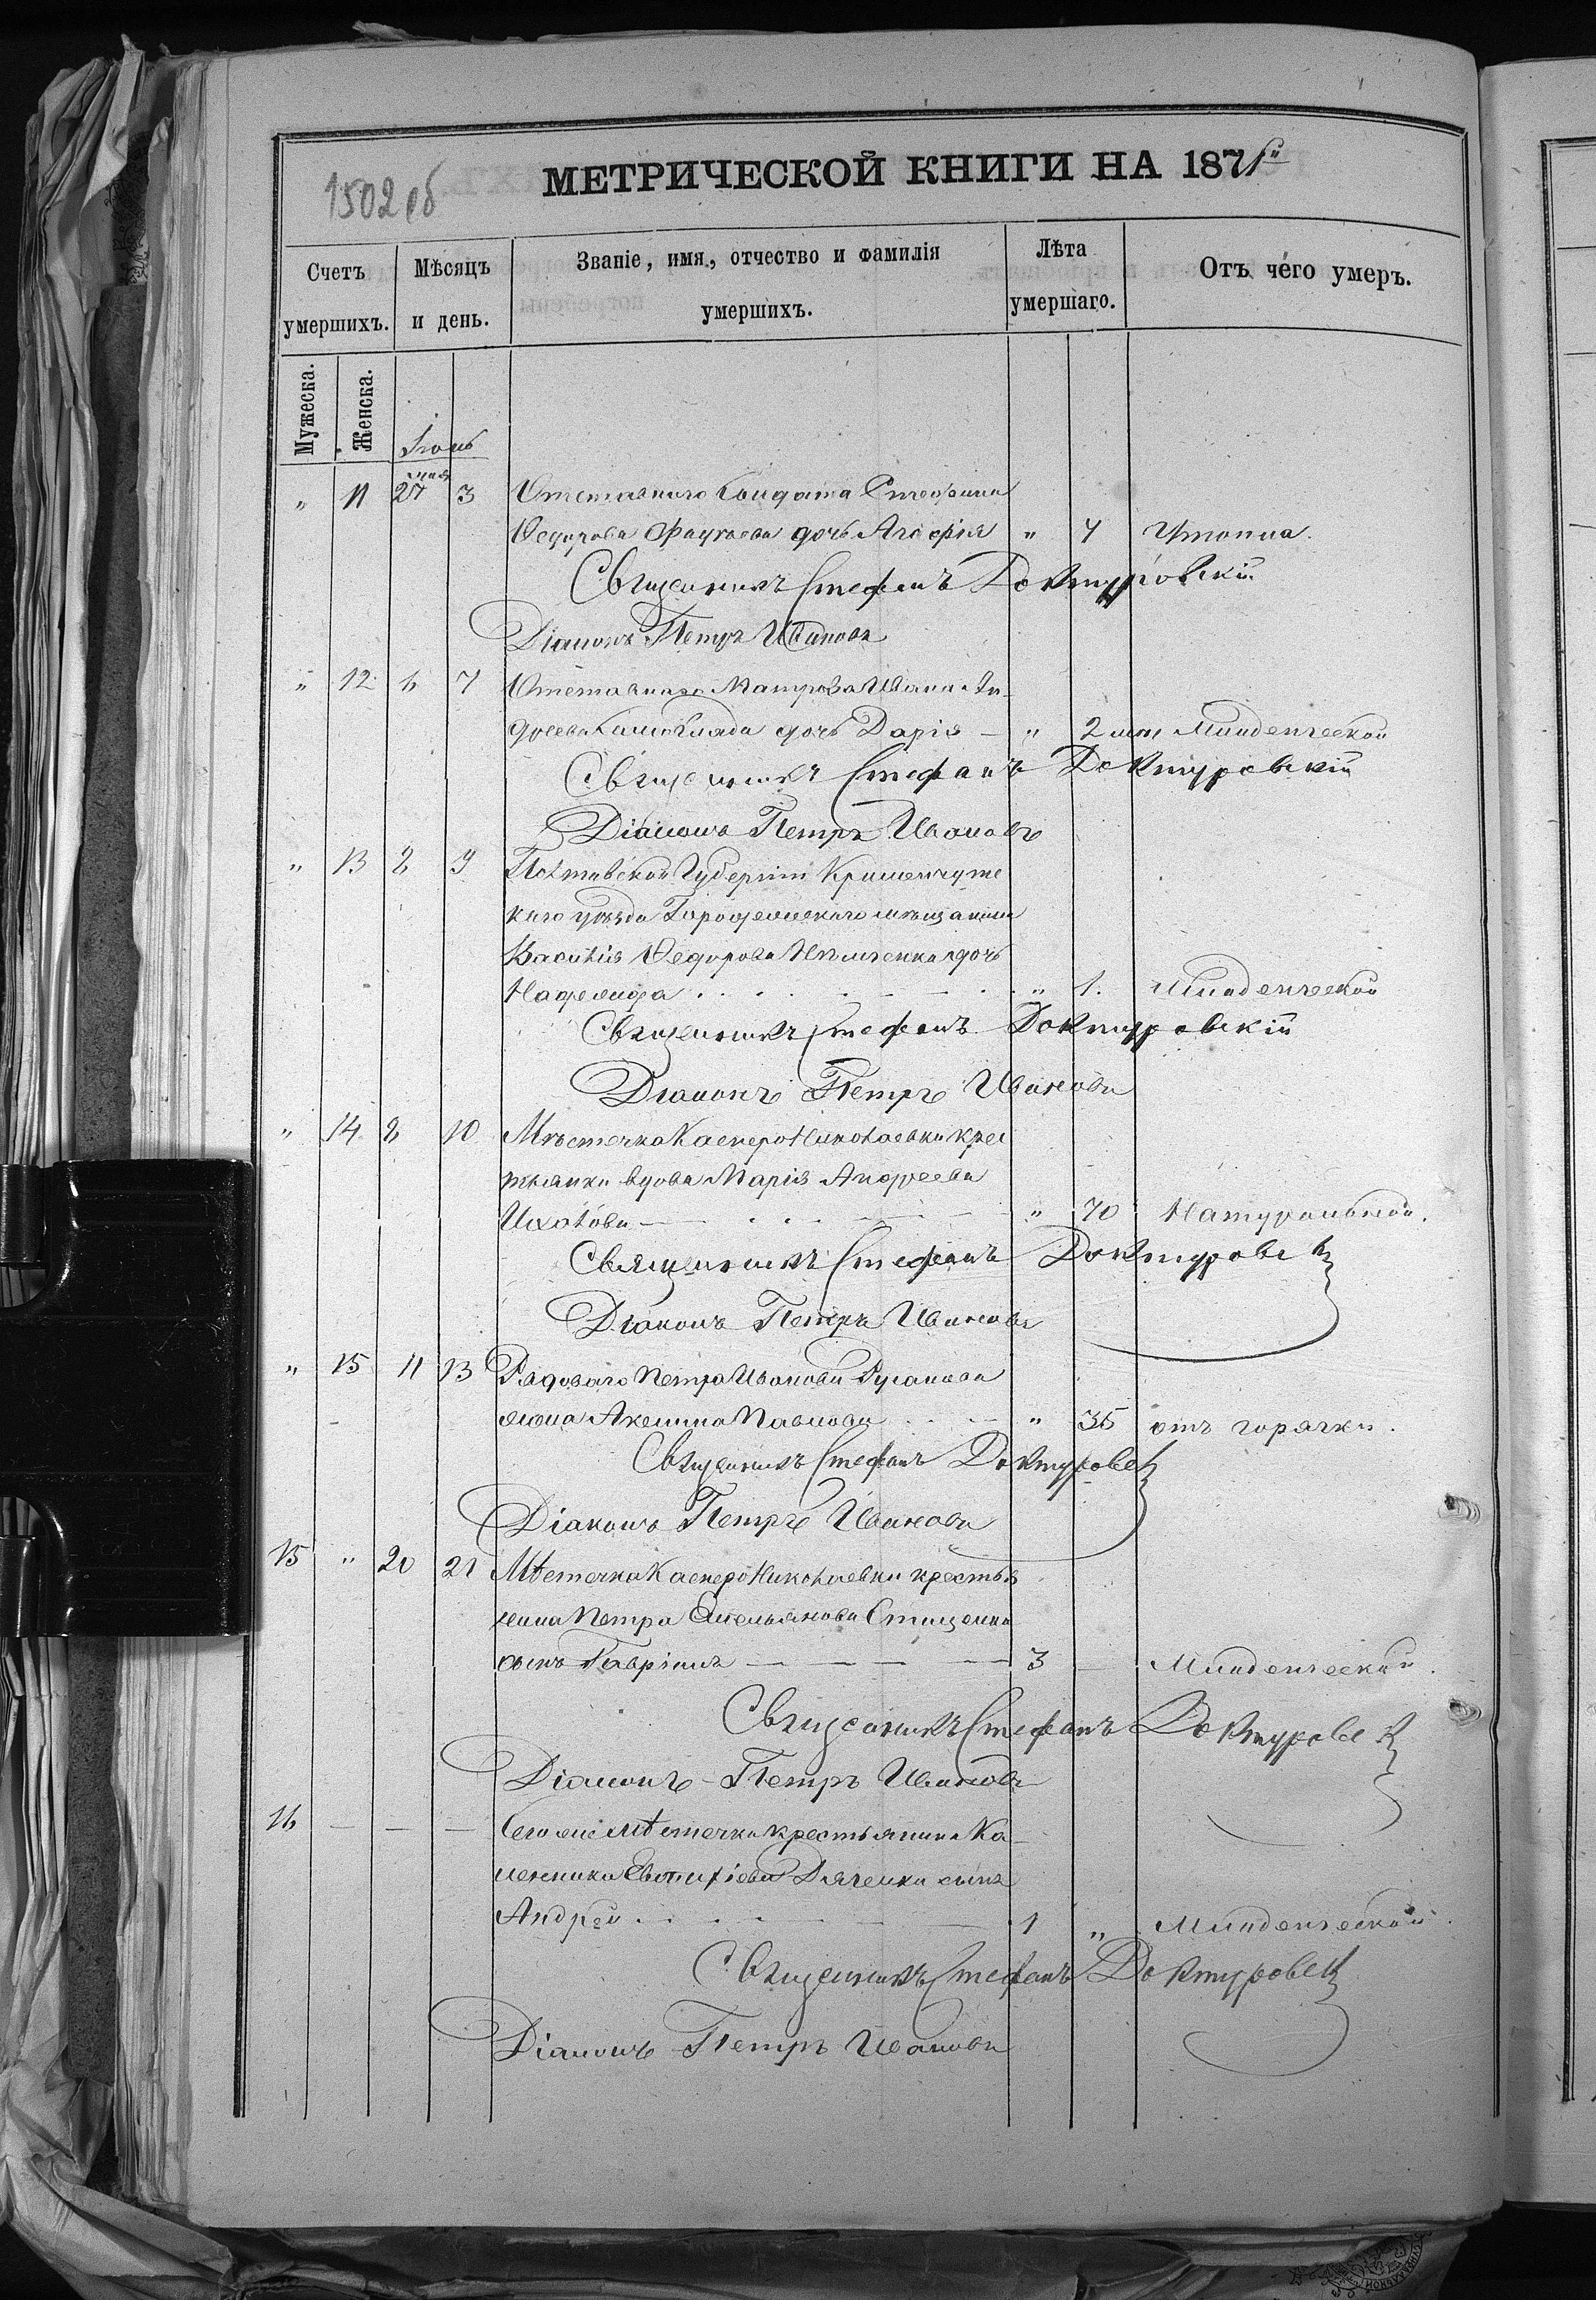 1502 об
МЕТРИЧЕСКОЙ КНИГИ НА 1871й
Счетъ умершихъ.
Мѣсяцъ и день.
Званіе, имя, отчество и фамилія умершихъ.
Лѣта умершаго.
Отъ чего умеръ.
Мужеска.
Женска.
" 11 27 3 Отставного Солдата
Ѳедорова дочь Агафія " 4 Утопла.
Священникъ Стефанъ Доктуровскій
Діаконъ Петръ Ивановъ
" 12 6 7 Отставнаго Матроза Ивана Ан-
дреева дочь Дарія — " 2 Младенческой
Священникъ Стефанъ Доктуровскій
Діаконъ Петръ Ивановъ
" 13 8 9 Полтавской Губерніи Кременчутс
каго уѣзда мѣщанина
Василія Ѳедорова дочь
Надежда " 1. Младенческой
Священникъ Стефанъ Доктуровскій
Діаконъ Петръ Ивановъ
" 14 8 10 Мѣстечка Касперо Николаевки крес
тьянки вдова Марія Андреева
" 70 Натуральной.
Священникъ Стефанъ Доктуровск
Діаконъ Петръ Ивановъ
" 15 11 13 Рядоваго Петра Иванова Русанова
жена Акелина Павлова " 35 отъ горячки.
Священникъ Стефанъ Доктуровск
Діаконъ Петръ Ивановъ
15 " 20 21 Мѣстечка Касперо Николаевки крестья
нина Петра Емельянова
сынъ Гавріилъ — 3 — Младенческой.
Священникъ Стефанъ Доктуровск
Діаконъ Петръ Ивановъ
16 — — — Сего же мѣстечка крестьянина Ка-
Дяченки сынъ
Андрей 1 " Младенческой.
Священникъ Стефанъ Доктуровск
Діаконъ Петръ Ивановъ